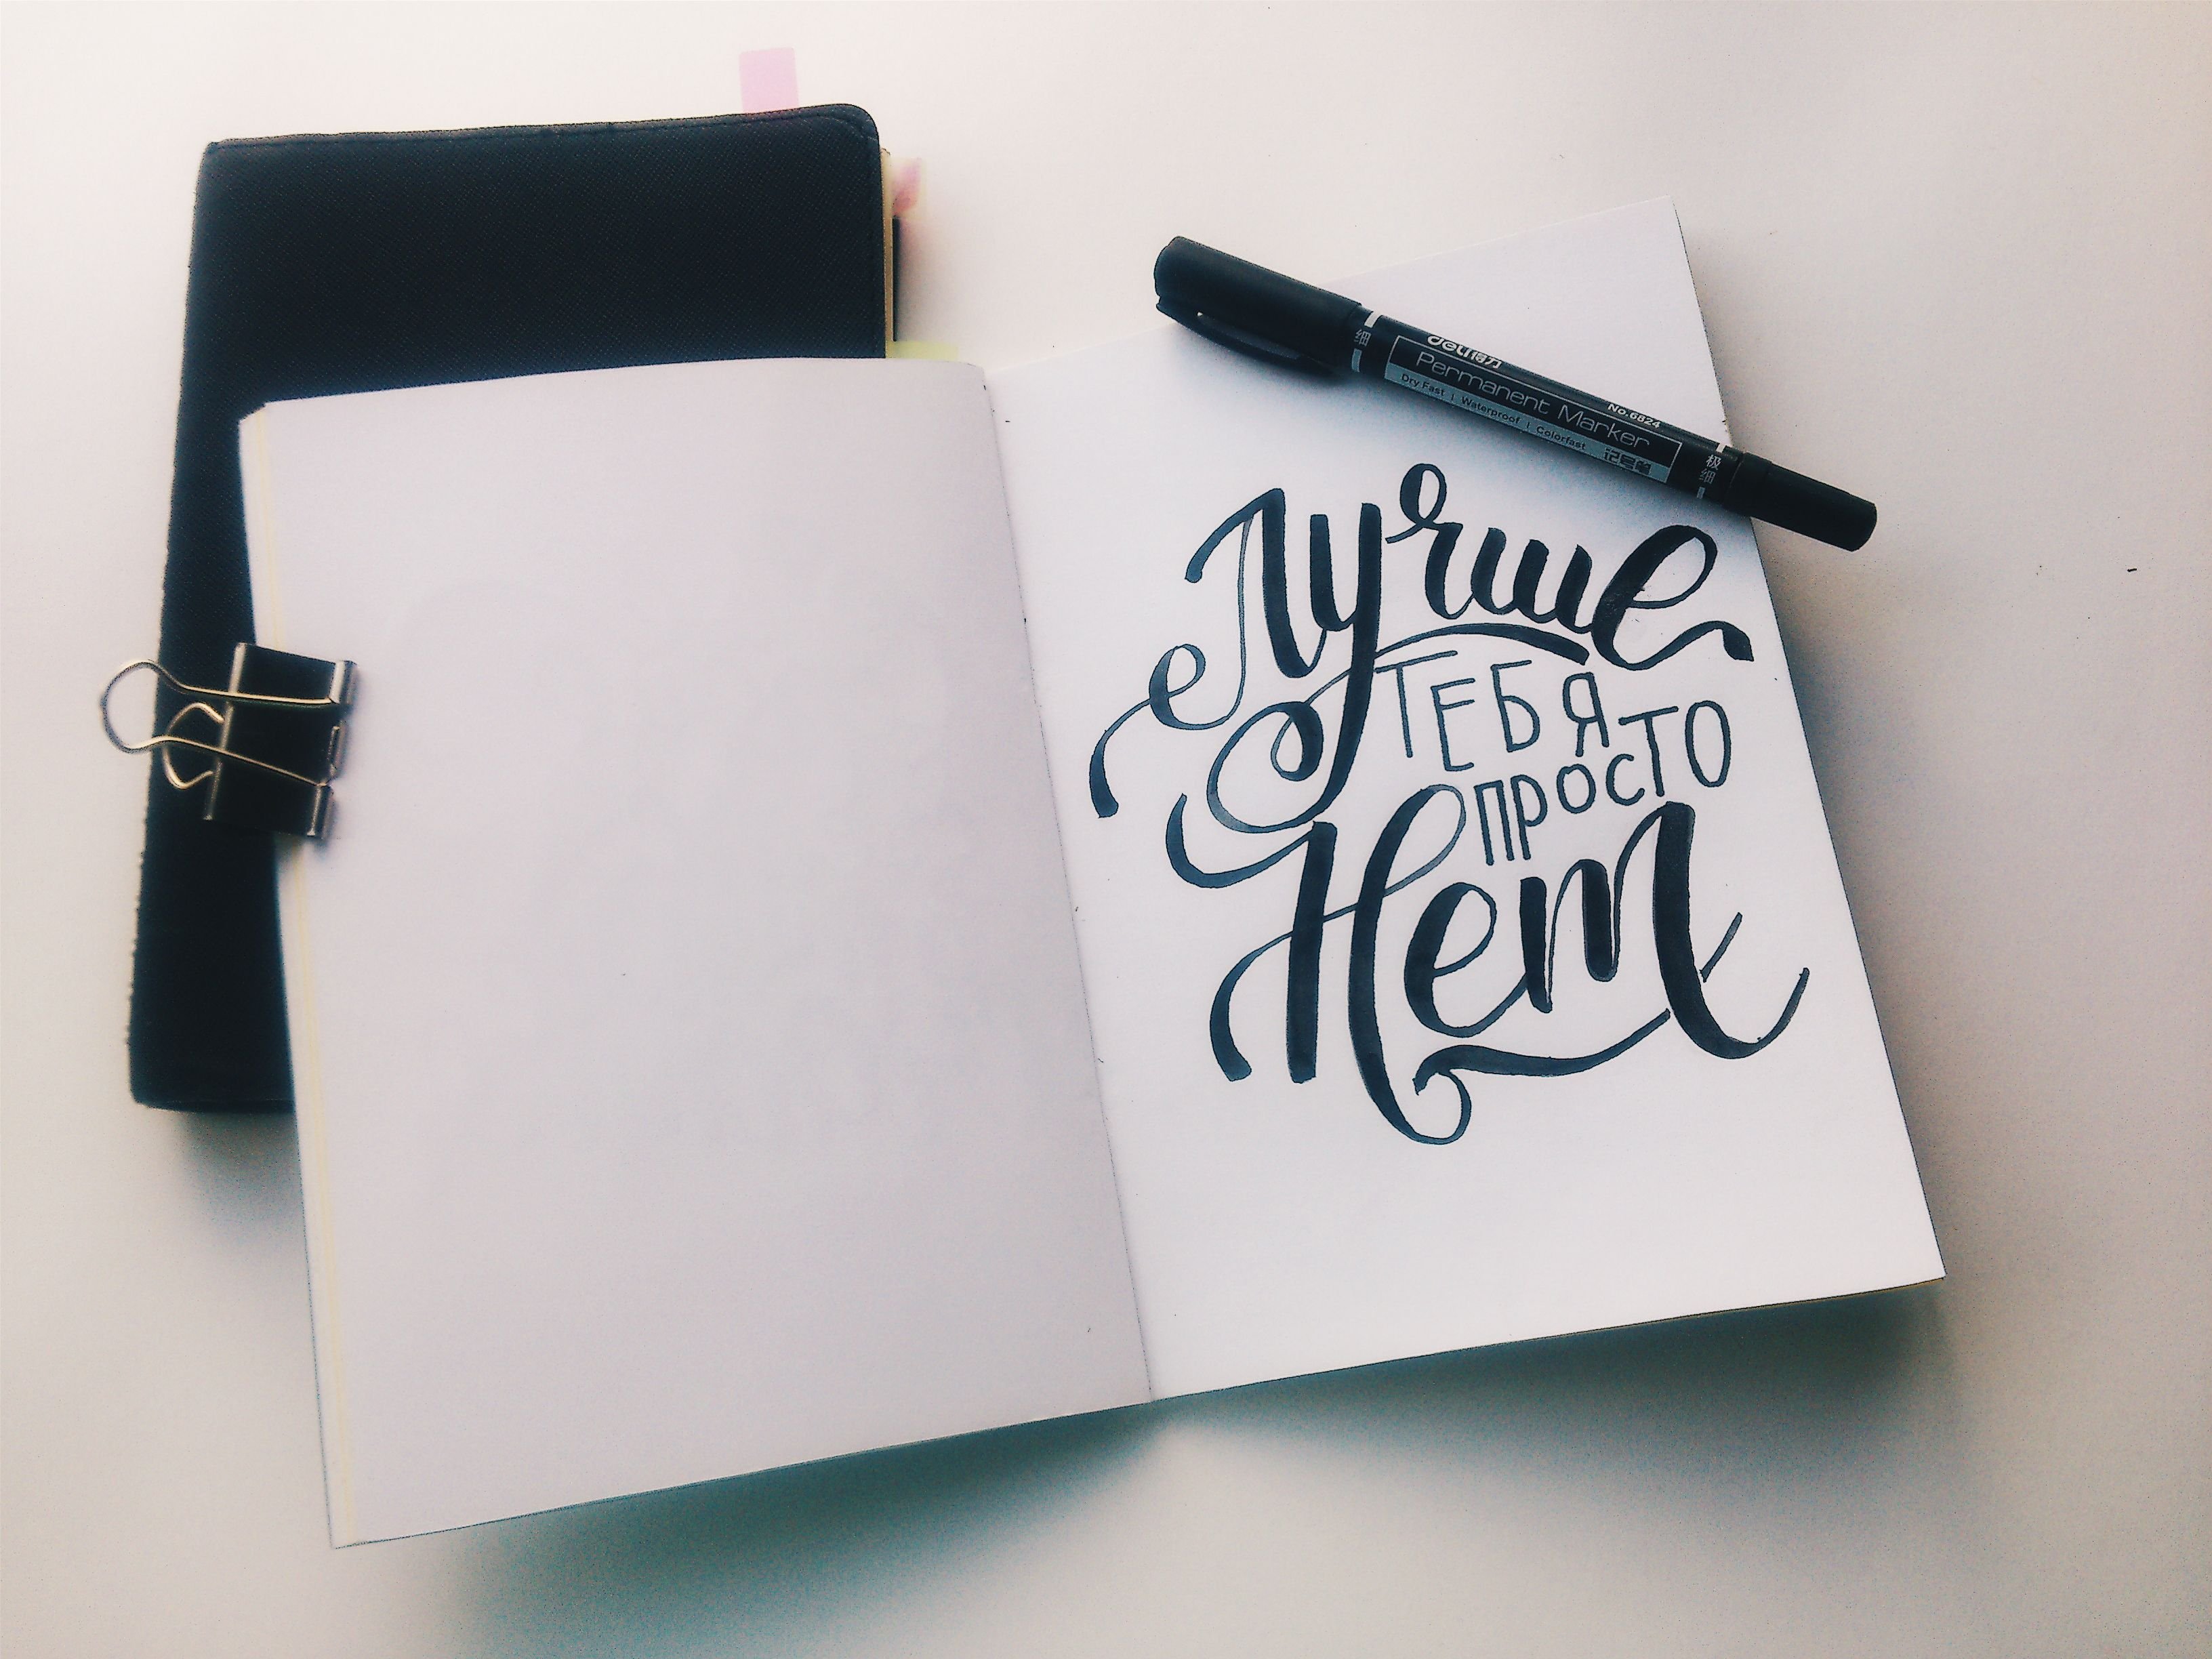 细
deli得力
Permanent Marker
No.6824
Dry Fast | Waterproof | Colorfast
记号笔
极细
Лучше
ТЕБЯ
ПРОСТО
Нет